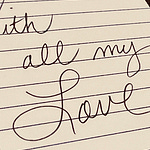 ith
all my
Love